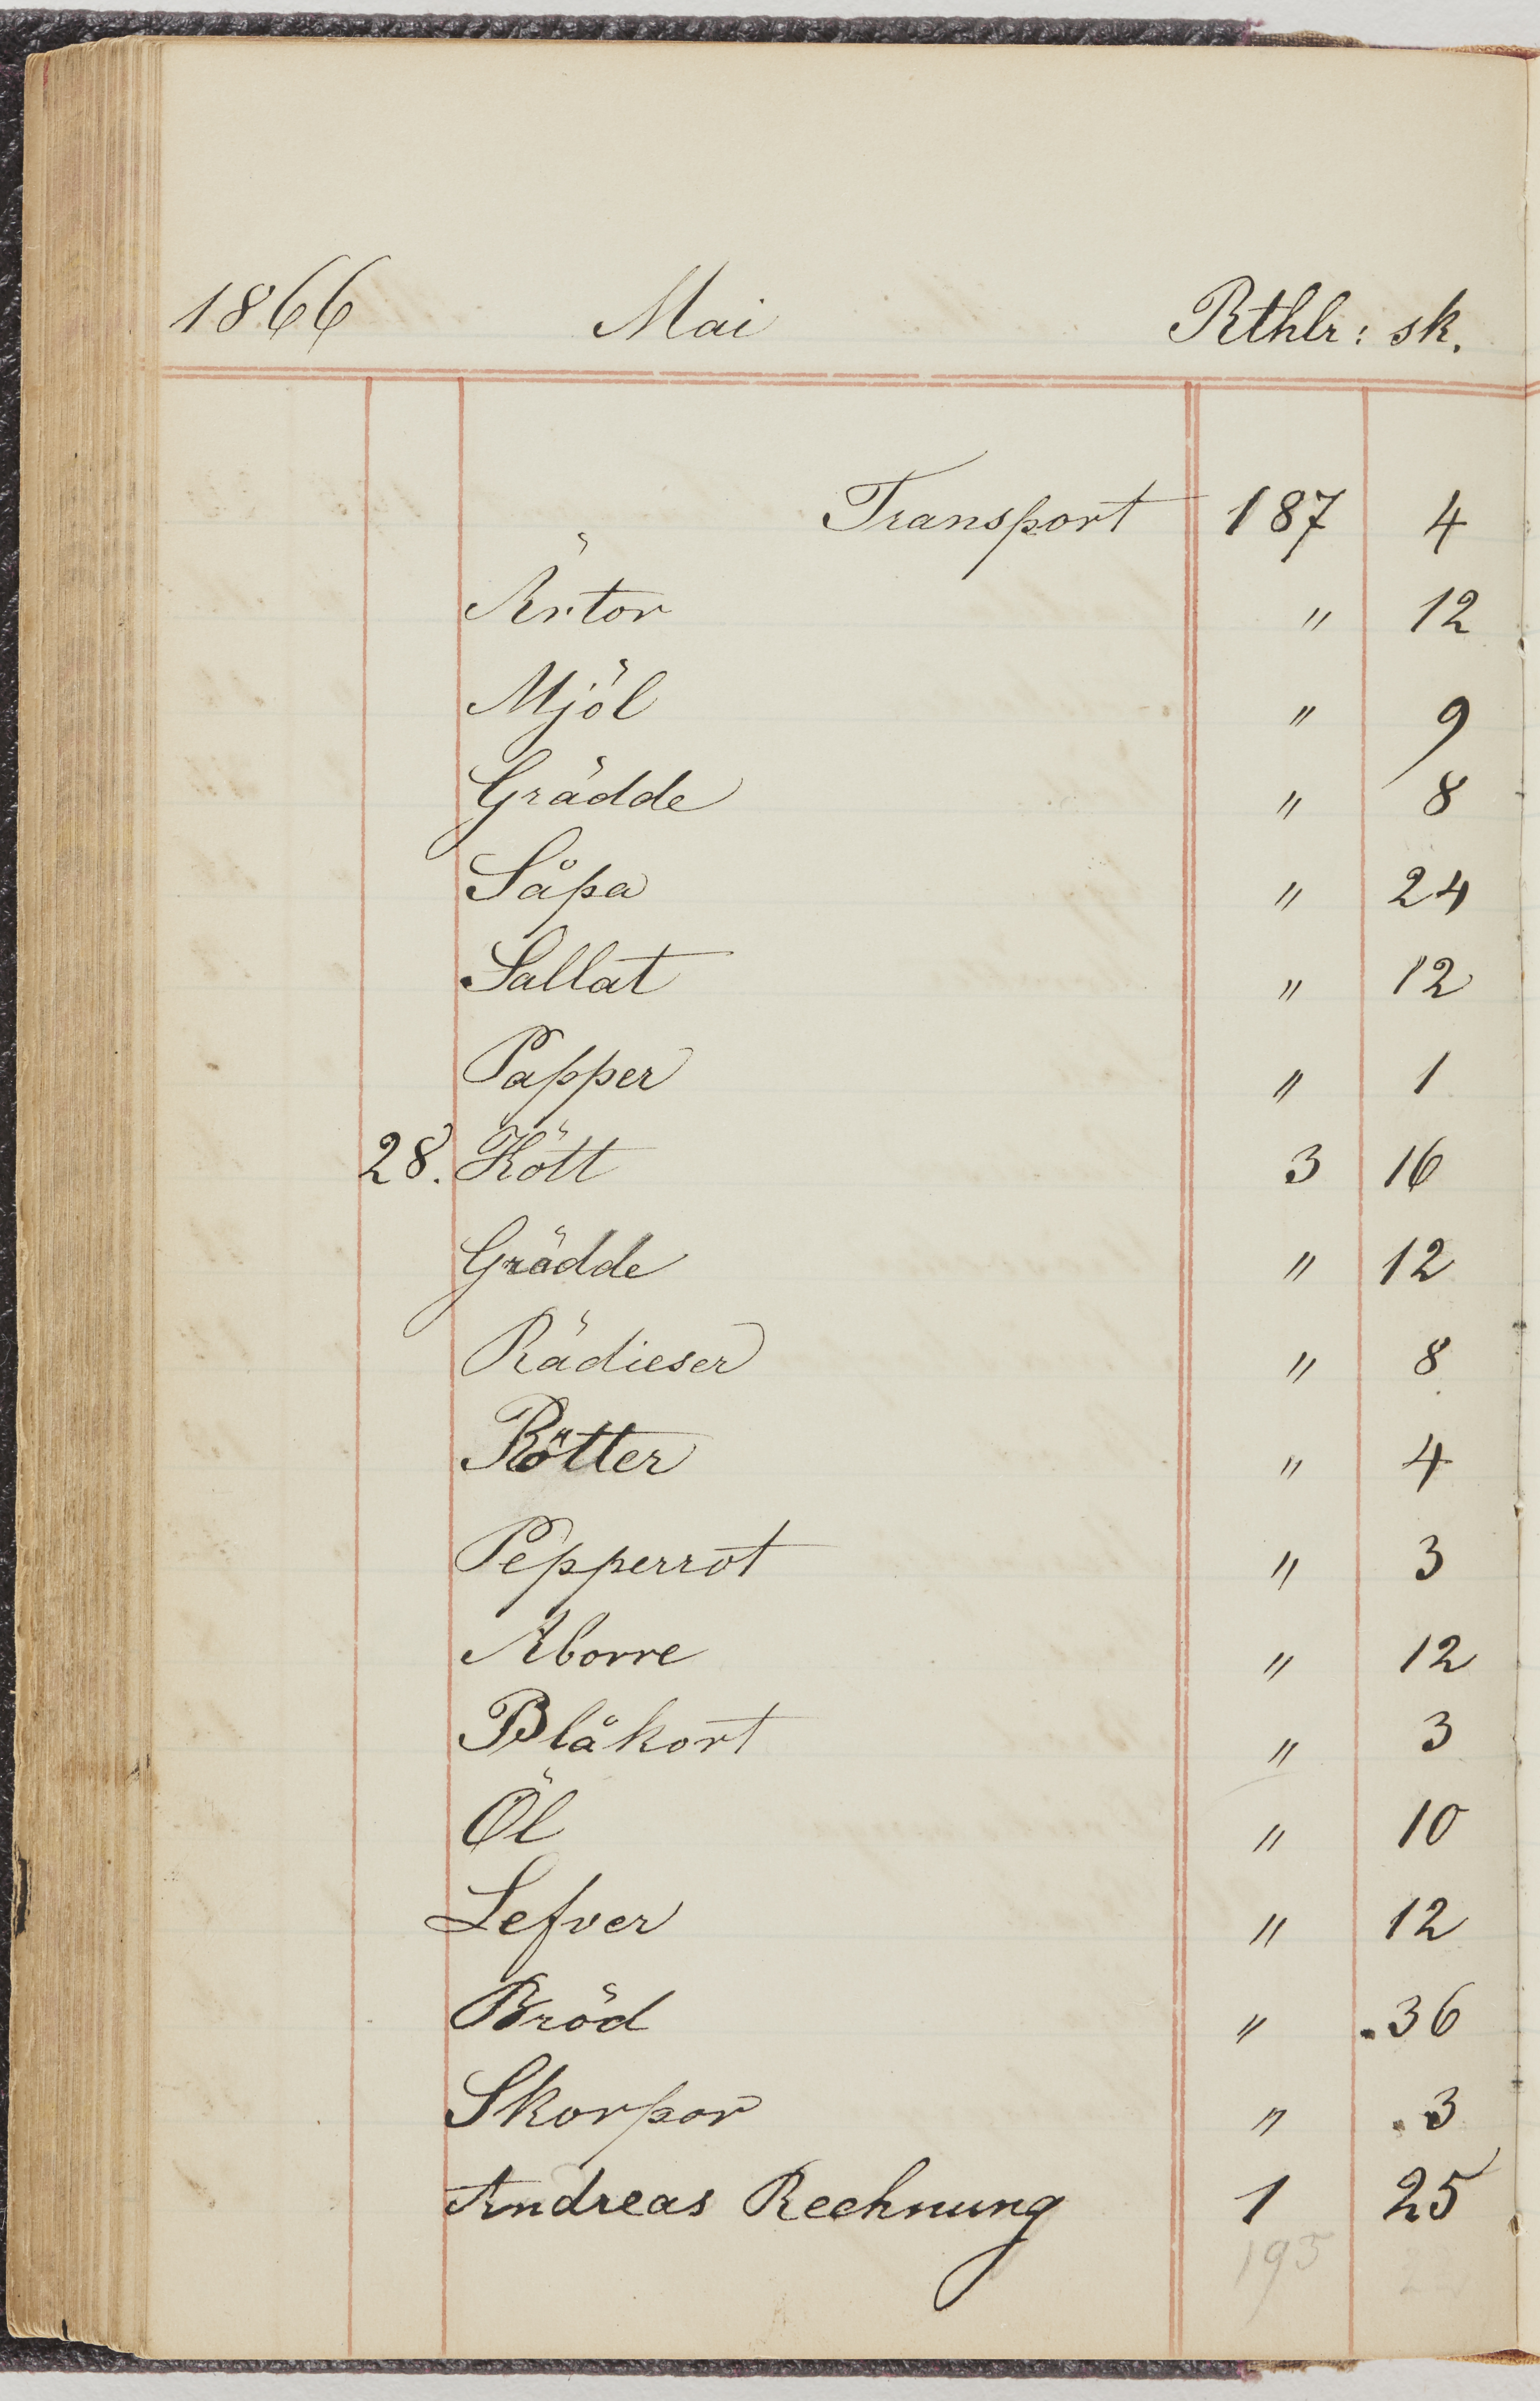 1866 Mai Rthlr: sk.
Transport 187 4
Ärtor " 12
Mjöl " 9
Grädde " 8
Såpa " 24
Sallat " 12
Papper " 1
28. Kött 3 16
Grädde " 12
Rädieser " 8
Rötter " 4
Pepperrot " 3
Aborre " 12
Blåkort " 3
Öl " 10
Lefver " 12
Bröd " .36
Skorpor " .3
Andreas Rechnung 1 25
195 22